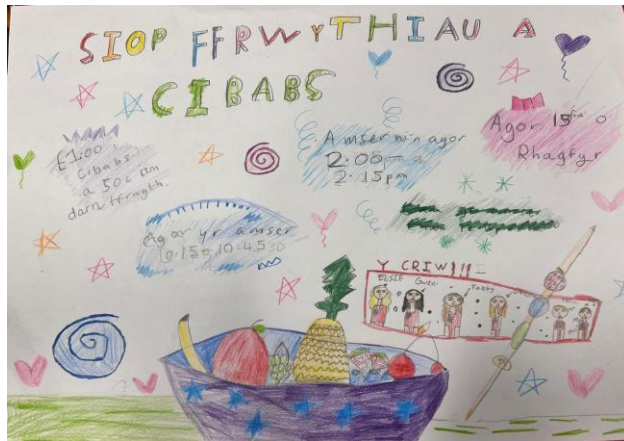 SIOP FFRWYTHIAU A
CIBABS
£1:00
Cibabs
a 50c am
darn ffrwyth.
Amser ni'n agor
2:00pm a
2.15pm
Agor 15 o
Rhagfyr
Agor yr amser
10:15 10:45
Y CRIW!!!
ELSIE Gweni Tabby